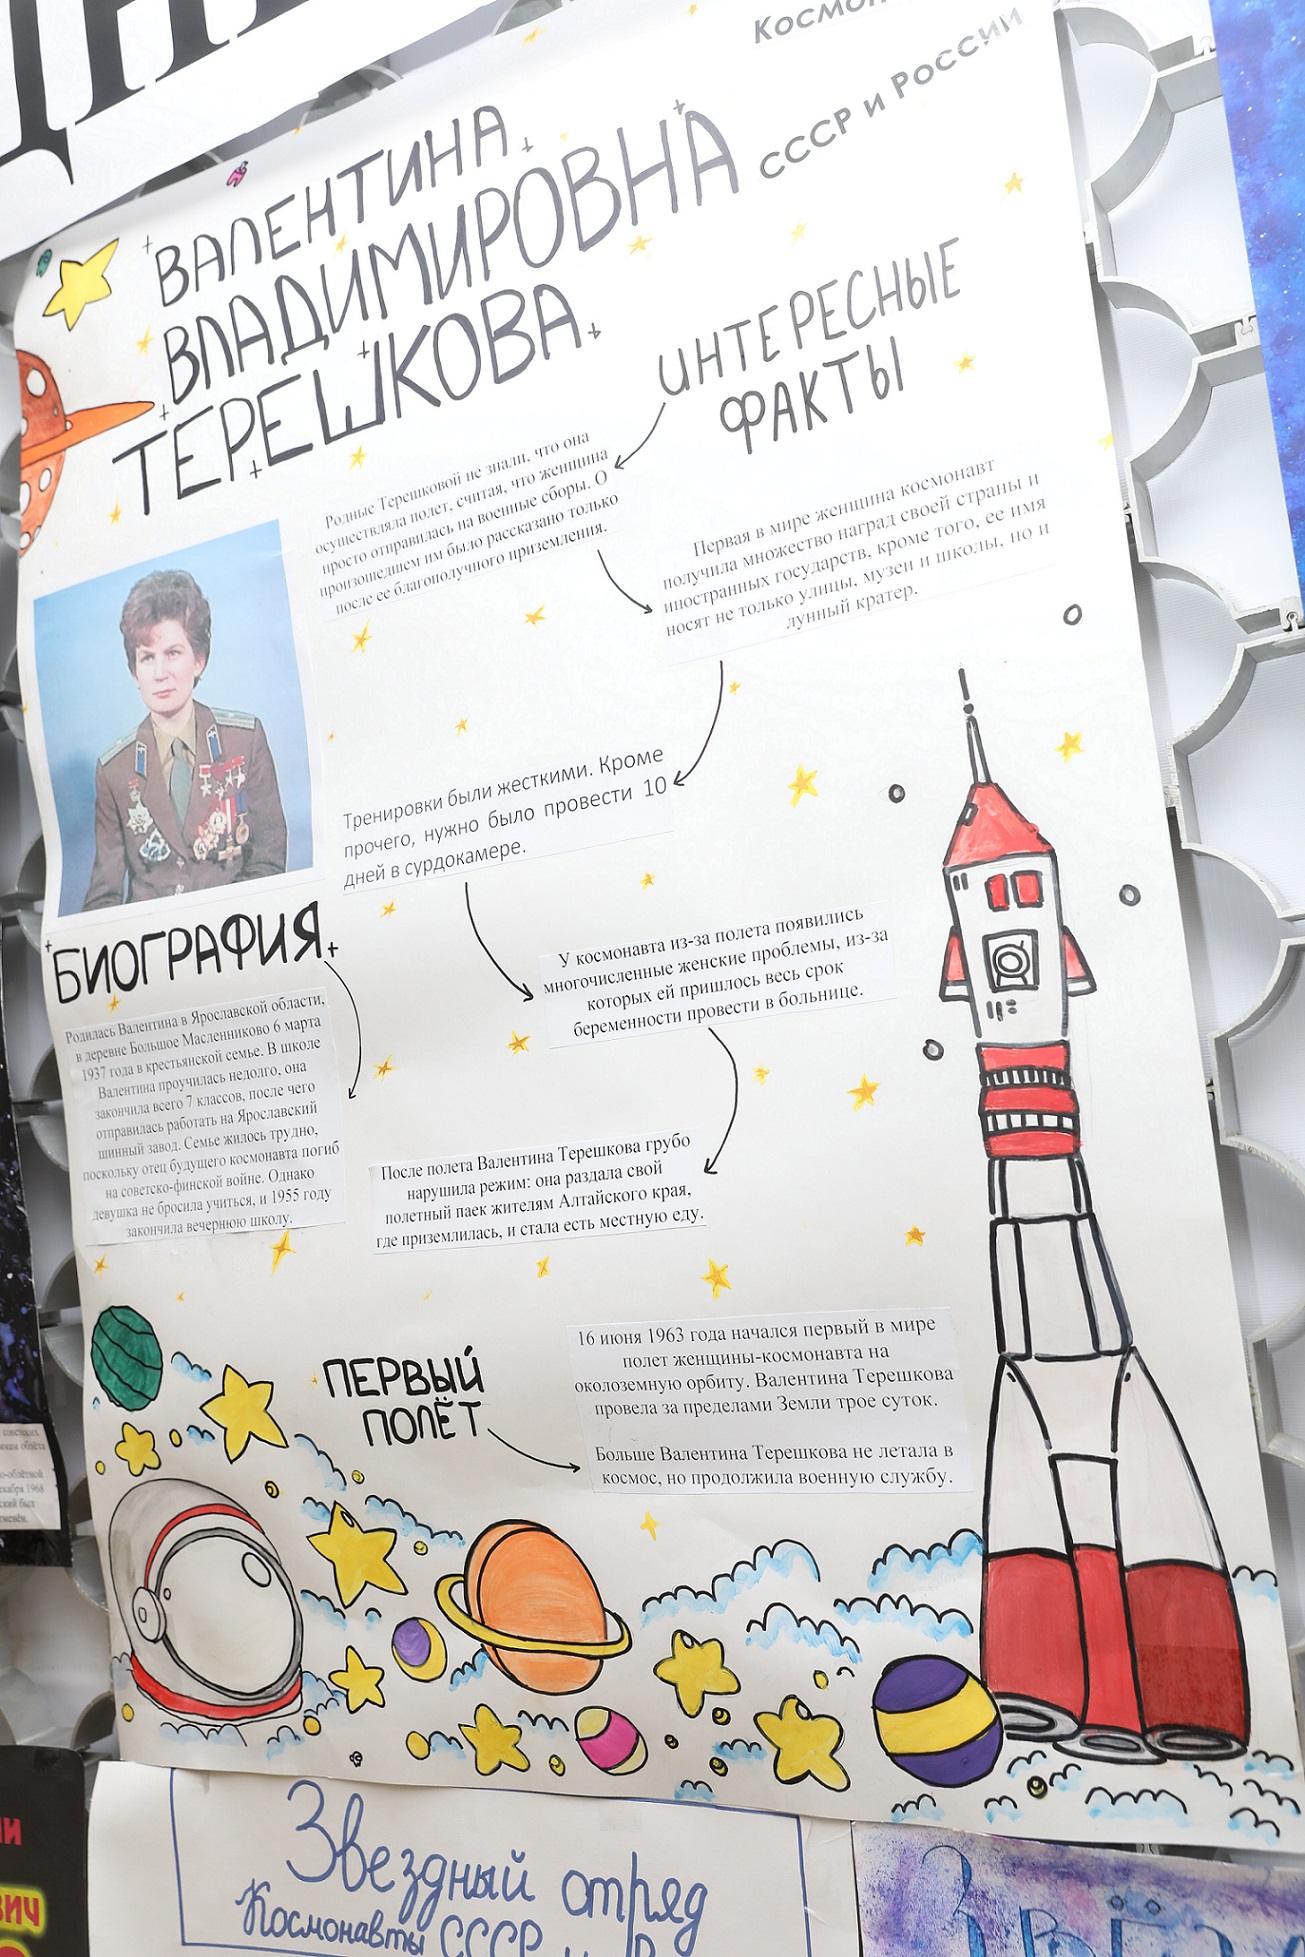 СССР и России
ВАЛЕНТИНА
ВЛАДИМИРОВНА
ТЕРЕШКОВА
ИНТЕРЕСНЫЕ
ФАКТЫ
Родные Терешковой не знали, что она
осуществляла полет, считая, что женщина
просто отправилась на военные сборы. О
произошедшем им было рассказано только
после ее благополучного приземления.
Первая в мире женщина космонавт
получила множество наград своей страны и
иностранных государств, кроме того, ее имя
носят не только улицы, музеи и школы, но и
лунный кратер.
Тренировки были жесткими. Кроме
прочего, нужно было провести 10
дней в сурдокамере.
У космонавта из-за полета появились
многочисленные женские проблемы, из-за
которых ей пришлось весь срок
беременности провести в больнице.
После полета Валентина Терешкова грубо
нарушила режим: она раздала свой
полетный паек жителям Алтайского края,
где приземлилась, и стала есть местную еду.
БИОГРАФИЯ
Родилась Валентина в Ярославской области,
в деревне Большое Масленниково 6 марта
1937 года в крестьянской семье. В школе
Валентина проучилась недолго, она
закончила всего 7 классов, после чего
отправилась работать на Ярославский
шинный завод. Семье жилось трудно,
поскольку отец будущего космонавта погиб
на советско-финской войне. Однако
девушка не бросила учиться, и 1955 году
закончила вечернюю школу.
ПЕРВЫЙ
ПОЛЁТ
16 июня 1963 года начался первый в мире
полет женщины-космонавта на
околоземную орбиту. Валентина Терешкова
провела за пределами Земли трое суток.
Больше Валентина Терешкова не летала в
космос, но продолжила военную службу.
Звездный отряд
Космонавты СССР и